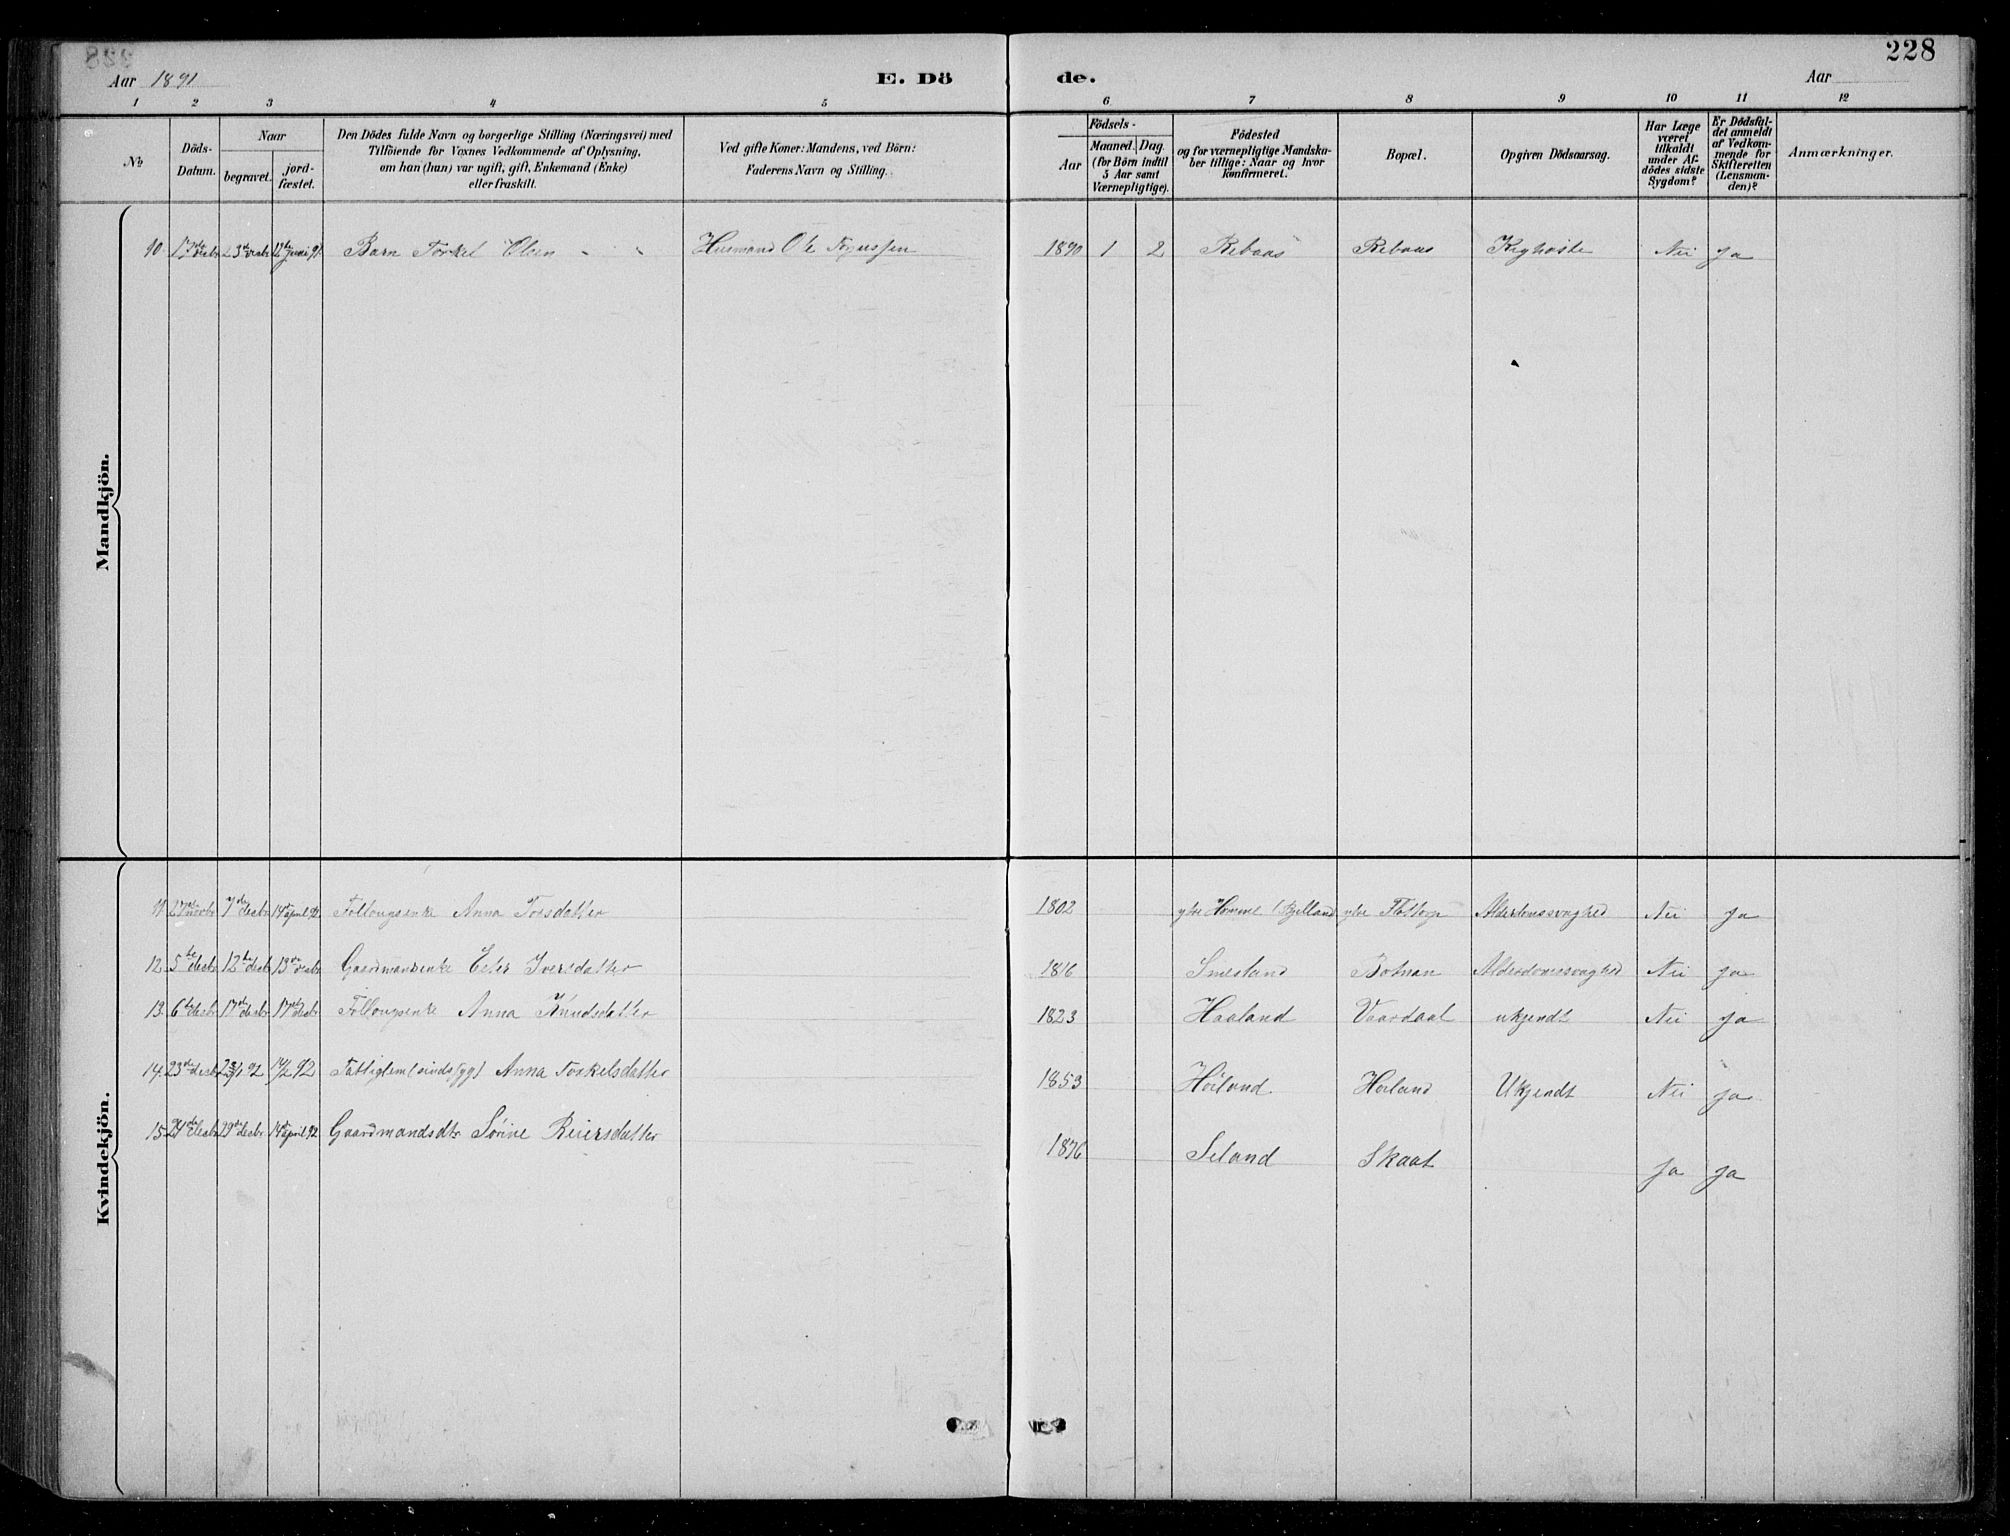 228
Aar 1891 E. Dö de. Aar
1 2 3 4 5 6 7 8 9 10 11 12
№ Döds-Datum. Naar begravet. jordfæstet. Den Dödes fulde Navn og borgerlige Stilling (Næringsvei) med Tilföiende for Voxnes Vedkommende af Oplysning, om han (hun) var ugift, gift, Enkemand (Enke) eller fraskilt. Ved gifte Koner: Mandens, ved Börn: Faderens Navn og Stilling. Födsels- Aar Maaned. Dag. (for Börn indtil 5 Aar samt Værnepligtige). Födested og for værnepligtige Mandskaber tillige: Naar og hvor konfirmeret. Bopæl. Opgiven Dödsaarsag. Har Læge været tilkaldt under Afdödes sidste Sygdom? Er Dödsfaldet anmeldt af Vedkommende for Skifteretten (Lensmanden)? Anmærkninger.
Mandkjön.
10 desbr 23 desbr juni 91 Barn Torkel Olsen Husmand Ole 1890 1 2 Rebaas Rebaas Kighoste Nei Ja
Kvindekjön.
11 27 novbr 7de desbr 14 april 92 Anna Torsdatter 1802 ytre Homme Bjelland ytre Alderdomssvaghed Nei Ja
12 5te desbr 12te desbr 13de desbr Gaardmandsenke Ester Iversdatter 1816 Smeland Botnan Alderdomssvaghed Nei Ja
13. 6te desbr 17de desbr 17de desbr Anna Knudsdatter 1823 Haaland Vaardaal ukjendt Nei Ja
14. 23de desbr 92 92 Fattiglem (sindssyg) Anna Torkelsdatter 1853 Höiland Höiland Ukjendt Nei Ja
15 24de desbr 29de desbr 14 april 92 Gaardmandsdtr Sörine Reiersdatter 1876 Seland Skaat Ja Ja